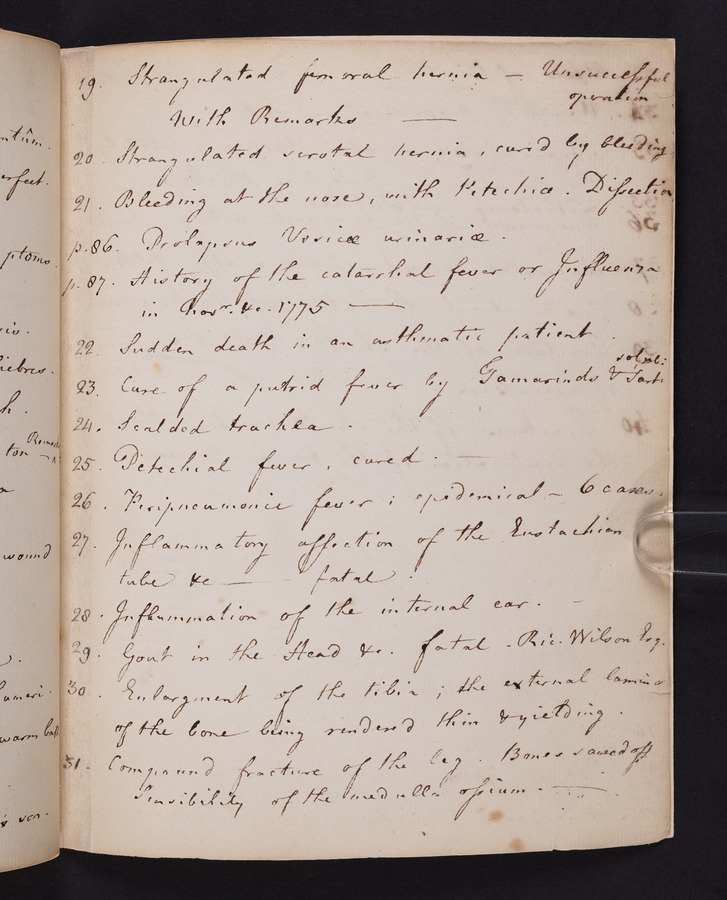 19. Strangulated femoral hernia — Unsuccessful
operation
With Remarks —
20. Strangulated scrotal hernia, cured by bleeding
21. Bleeding at the nose, with Petechiæ. Dissection
p.86. Prolapsus Vesicæ urinariæ.
p.87. History of the catarrhal fever or Influenza
in Novr. &c. 1775 —
22. Sudden death in an asthmatic patient.
23. Cure of a putrid fever by Tamarinds & Tart: solub:
24. Scalded trachea.
25. Petechial fever, cured. —
26. Peripneumonic fever; epidemical — 6 cases.
27. Inflammatory affection of the Eustachian
tube &c — fatal.
28. Inflammation of the internal ear. —
29. Gout in the Head &c. fatal. Ric. Wilson Esq.
30. Enlargment of the tibia; the external lamina
of the bone being render'd thin & yielding.
31. Compound fracture of the leg. Bones sawed off
Sensibility of the medulla ossium. —
ntûm.
erfect.
ptoms.
iebres.
h.
ton
wound
umeri.
warm bath
son.